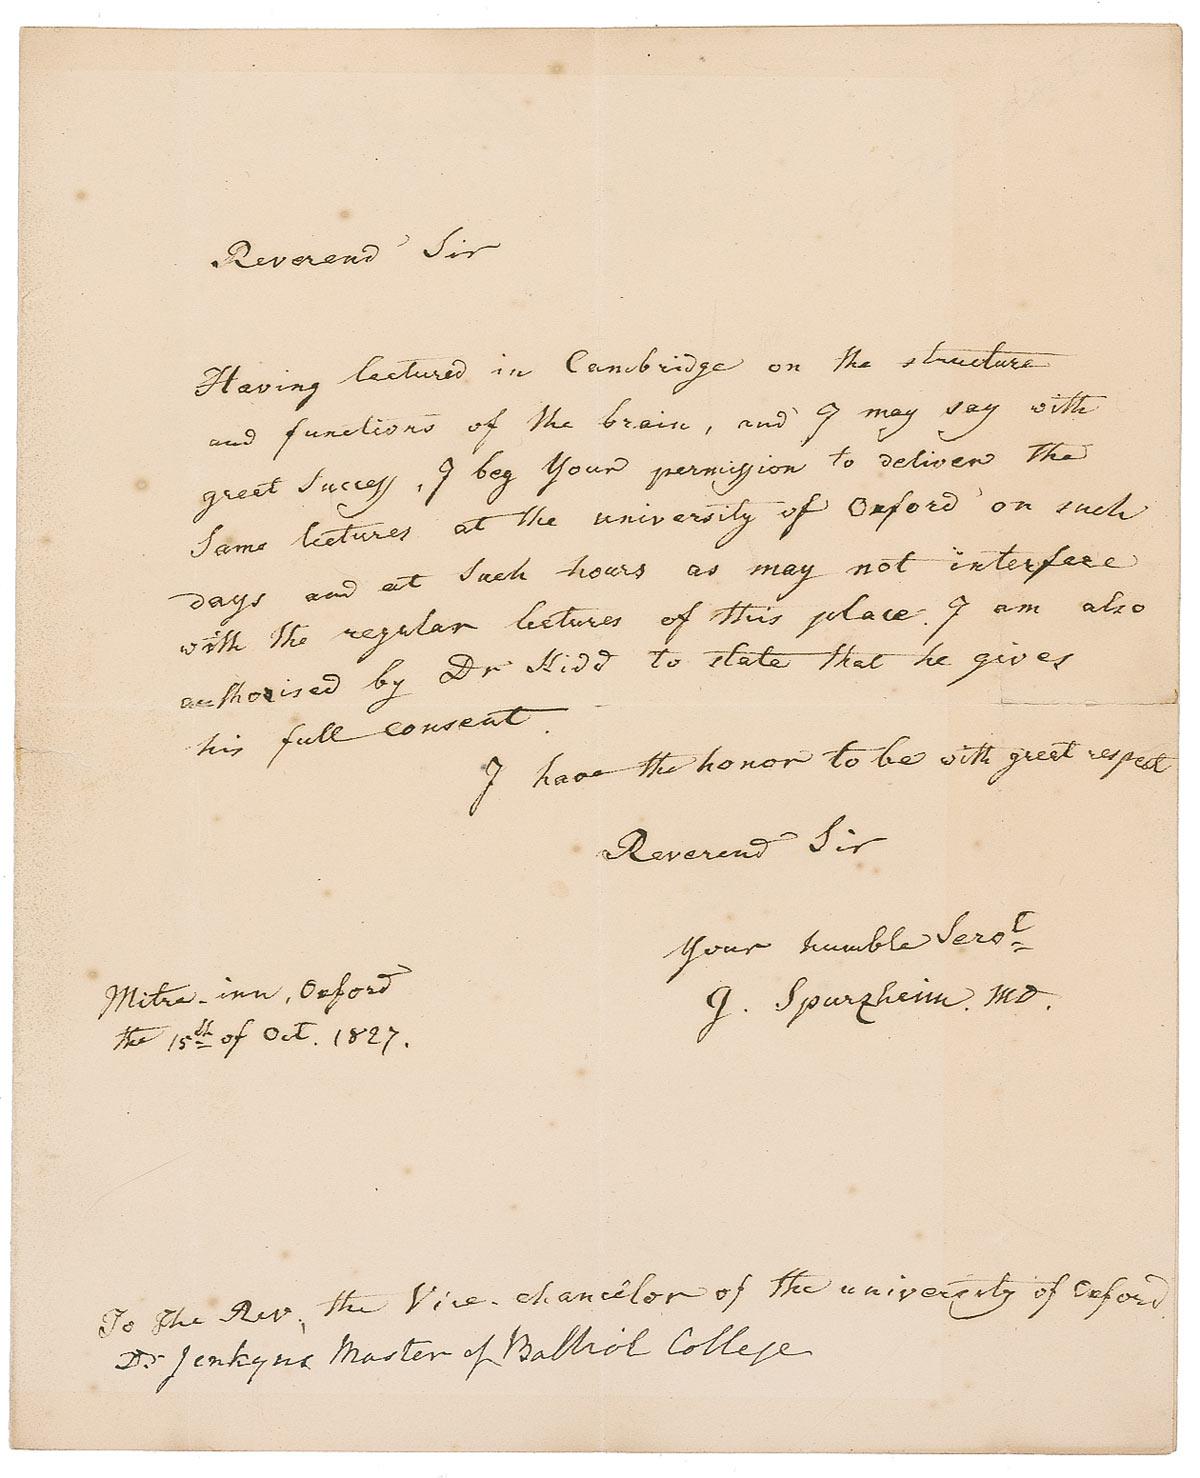 Reverend Sir
Having lectured in Cambridge on the structure
and functions of the brain, and I may say with
great Success, I beg Your permission to deliver the
Same lectures at the university of Oxford on such
days and at such hours as may not interfere
with the regular lectures of this place. I am also
authorised by Dr Kidd to state that he gives
his full consent.
I have the honor to be with great respect
Reverend Sir
Your humble Servt
J. Spurzheim. MD.
Mitre-inn, Oxford
the 15th of Oct. 1827.
To The Rev, the Vice-chancelor of the university of Oxford
Dr Jenkyns Master of Balliol College